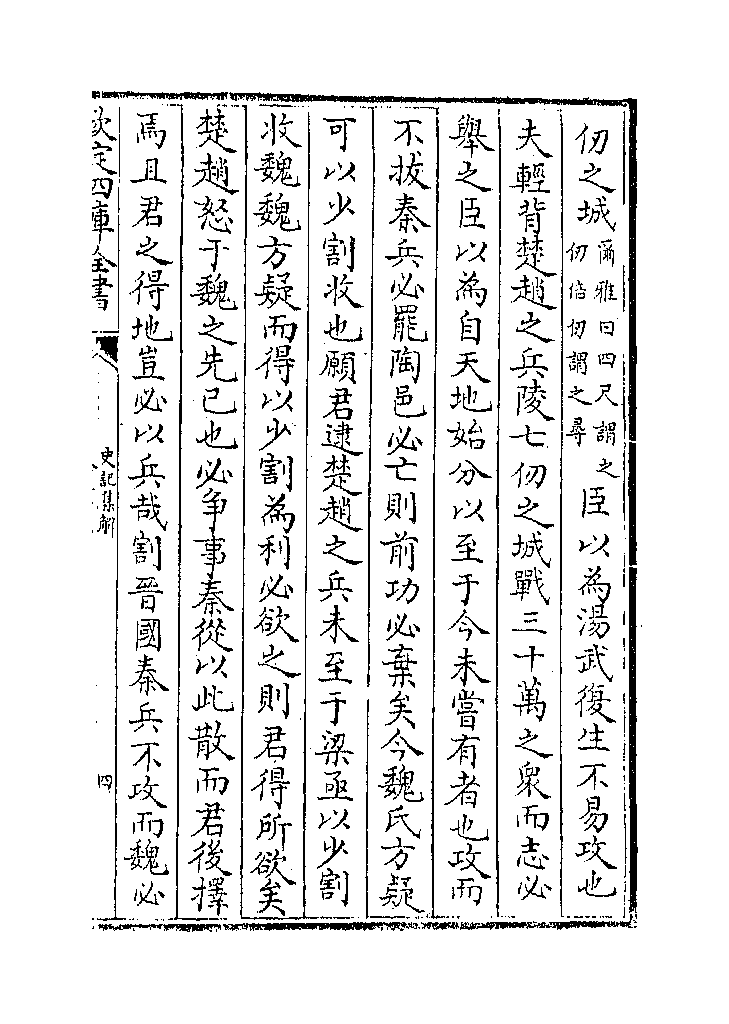 仞之城爾雅曰四尺謂之仞倍仞謂之尋臣以為湯武復生不易攻也
夫輕背楚趙之兵陵七仞之城戰三十萬之衆而志必
舉之臣以為自天地始分以至于今未嘗有者也攻而
不拔秦兵必罷陶邑必亡則前功必棄矣今魏氏方疑
可以少割收也願君逮楚趙之兵未至于梁亟以少割
收魏魏方疑而得以少割為利必欲之則君得所欲矣
楚趙怒于魏之先已也必争事秦從以此散而君後擇
焉且君之得地豈必以兵哉割晉國秦兵不攻而魏必
欽定四庫全書
史記集解
四